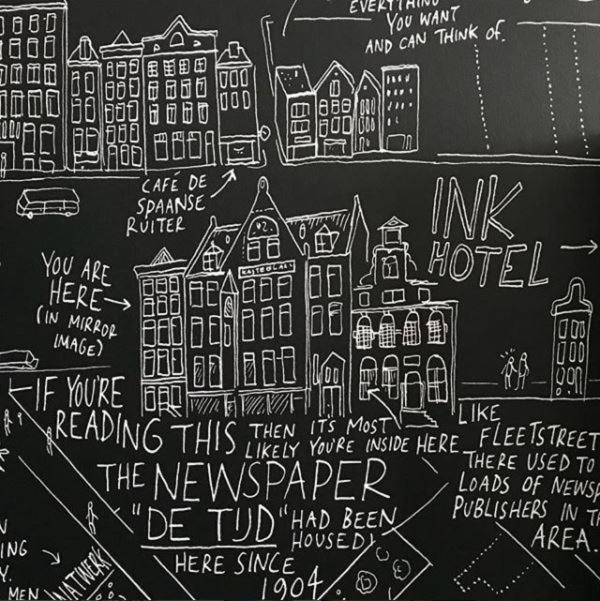 EVERYTHING
YOU WANT
AND CAN THINK of.
CAFÉ DE
SPAANSE
RUITER
INK
HOTEL
YOU ARE
HERE
(IN MIRROR
IMAGE)
IF YOU'RE
READING THIS THEN ITS MOST
LIKELY YOU'RE INSIDE HERE
THE NEWSPAPER
"DE TIJD" HAD BEEN
HOUSED)
HERE SINCE
1904.
LIKE
FLEETSTREET
THERE USED TO
LOADS OF NEWSP
PUBLISHERS IN TH
AREA.
ING
Y.
MEN